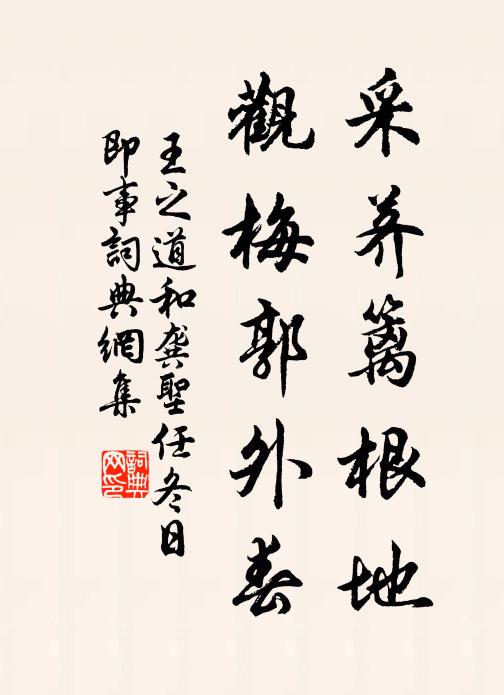 采荞篱根地
觀梅郭外春
王之道和龚聖任冬日
即事詞典網集
詞典
网印